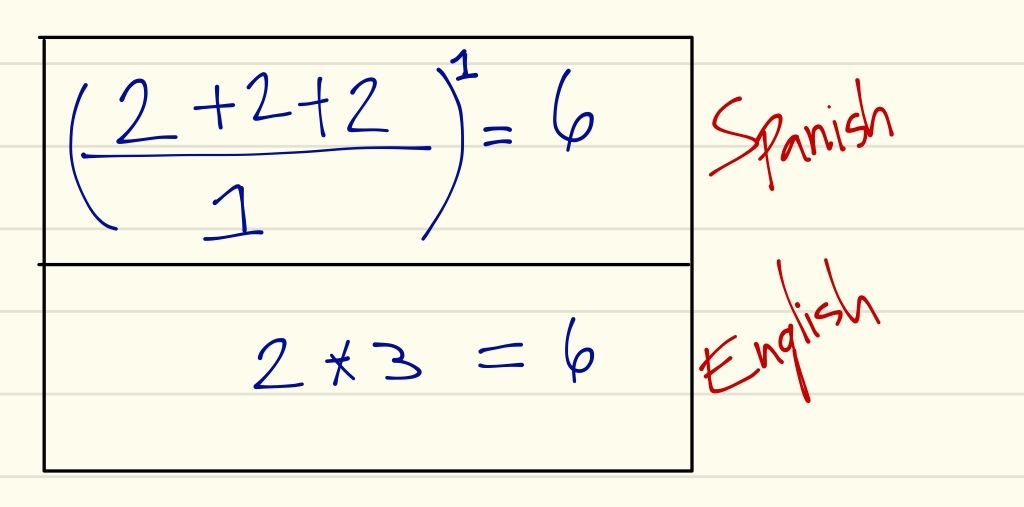 (2+2+2 / 1)^1 = 6
Spanish
2 * 3 = 6
English